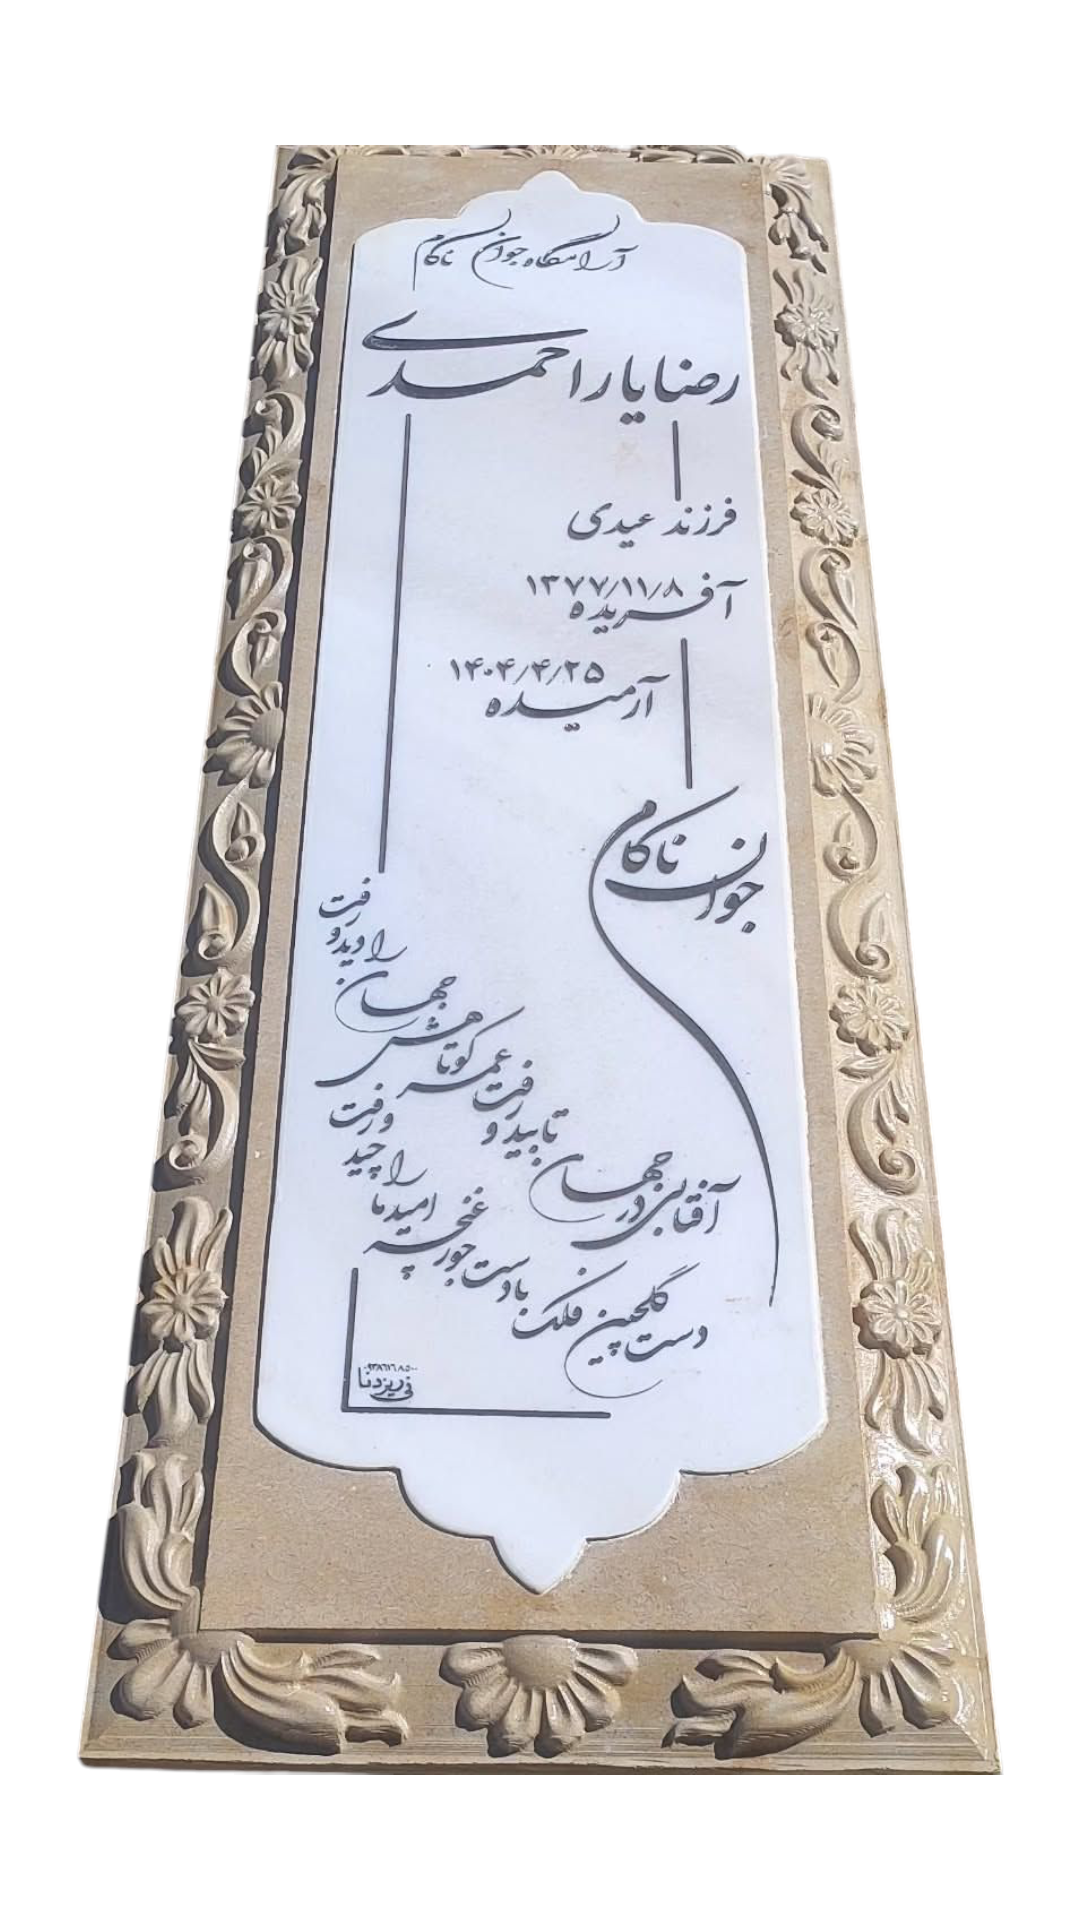 آرامگاه جوان ناکام
رضا یاراحمدی
فرزند عیدی
آفریده ۱۳۷۷/۱۱/۸
آرمیده ۱۴۰۴/۴/۲۵
جوان ناکام
آفتابی در جهان تابید و رفت
عمر کوتاهش جهان را دید و رفت
دست گلچین فلک با دست جور
غنچه امید ما را چید و رفت